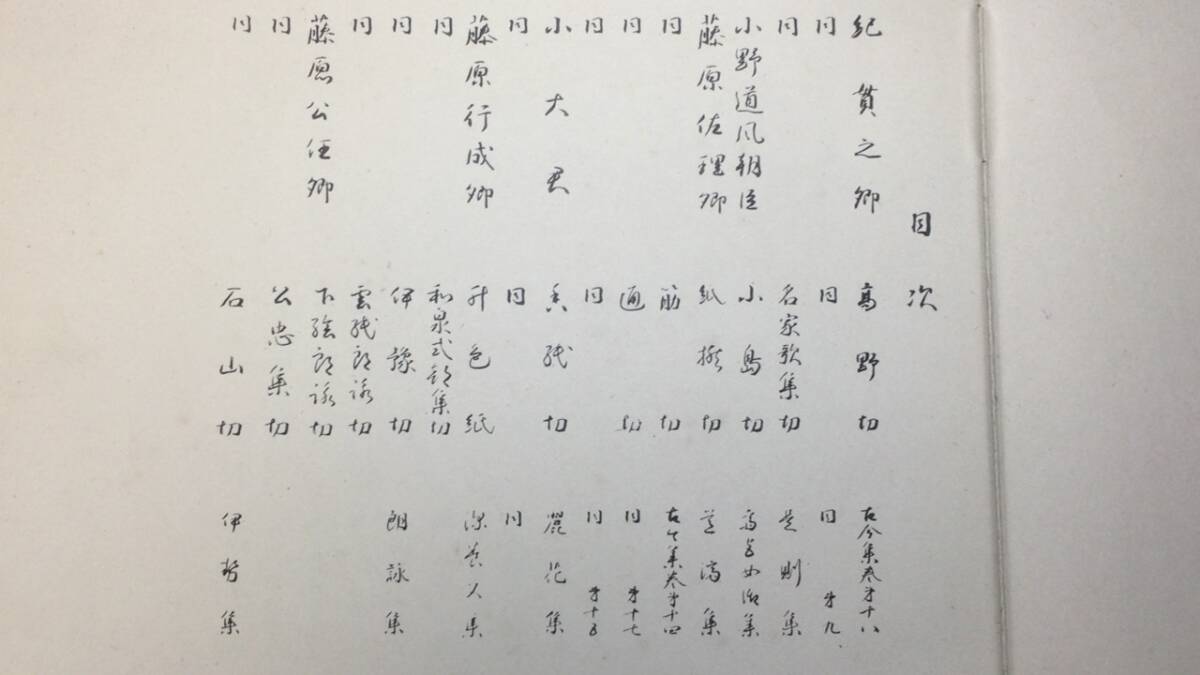 目次
紀貫之卿 高野切 古今集巻才十八
同 同 才九
同 名家歌集切 是則集
小野道風朝臣 小島切 斎宮女御集
藤原佐理卿 紙撚切 道済集
同 筋切 古今集巻才十四
同 通切 同 才十七
同 同 同 才十五
小大君 香紙切 麗花集
同 同 同
藤原行成卿 升色紙 深養父集
同 和泉式部集切
同 伊豫切 朗詠集
同 雲紙朗詠切
藤原公任卿 下絵朗詠切
同 公忠集切
同 石山切 伊勢集